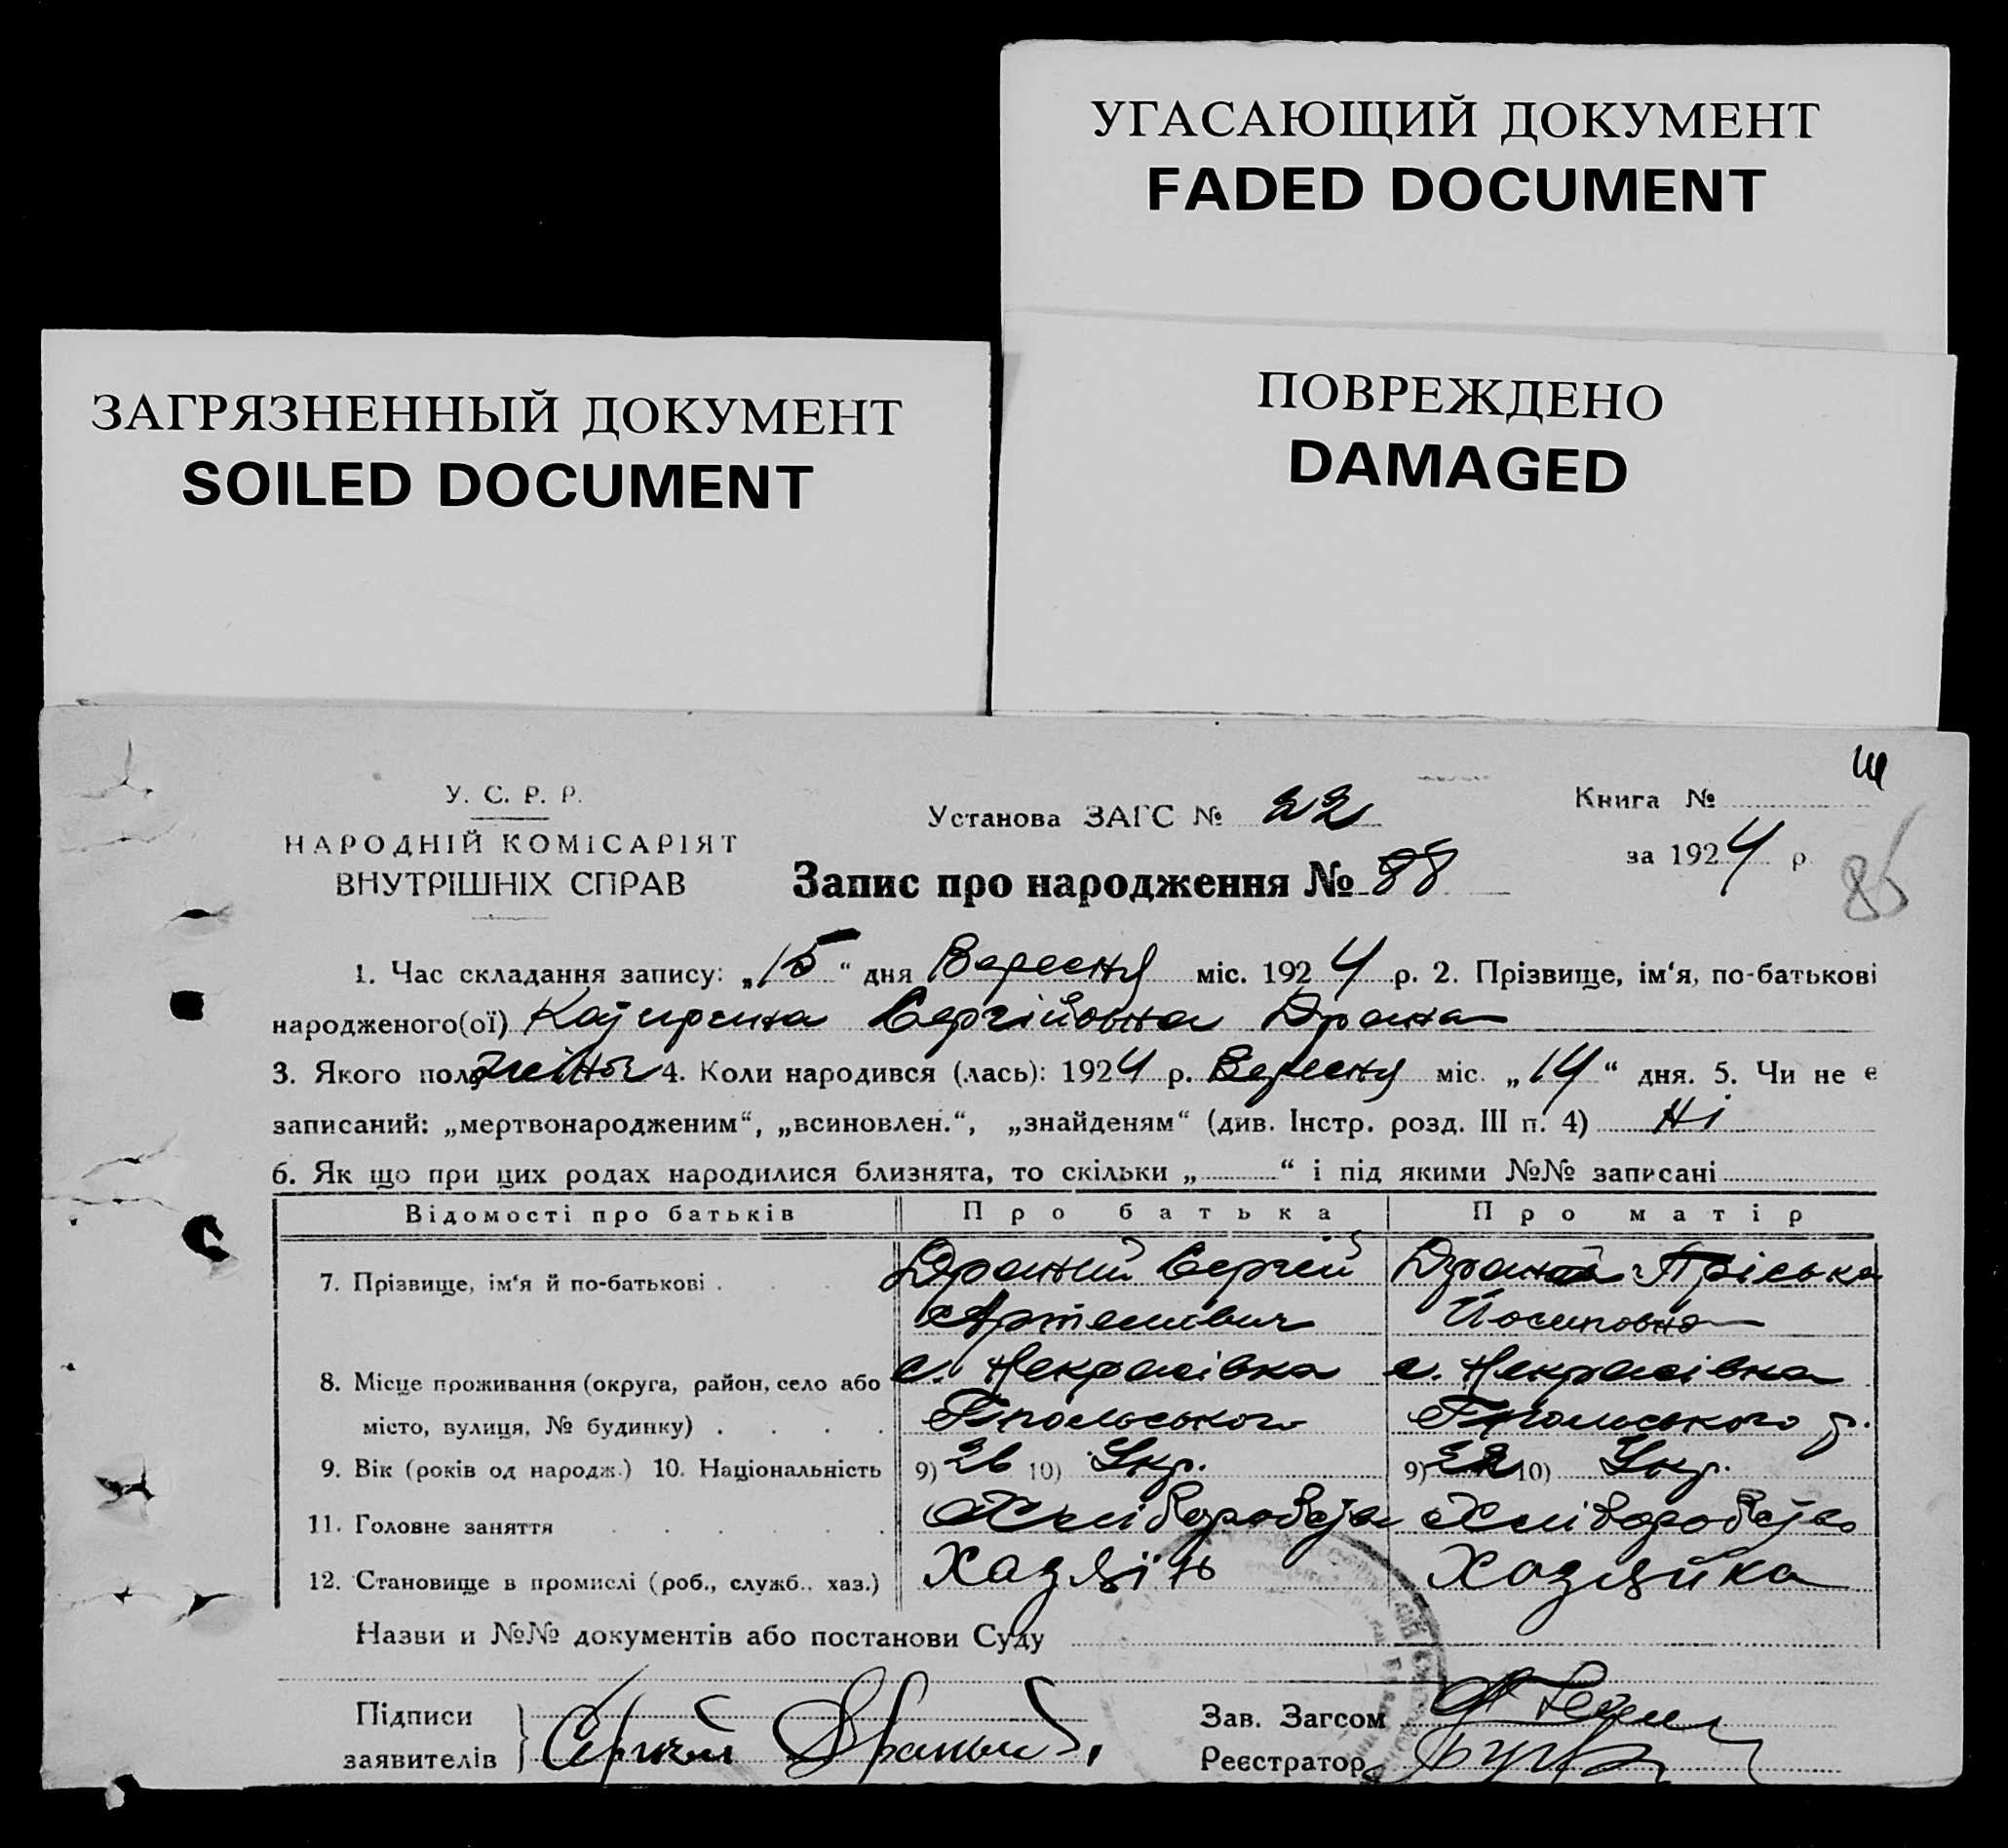 УГАСАЮЩИЙ ДОКУМЕНТ
FADED DOCUMENT
ЗАГРЯЗНЕННЫЙ ДОКУМЕНТ
SOILED DOCUMENT
ПОВРЕЖДЕНО
DAMAGED
У. С. Р. Р.
НАРОДНІЙ КОМІСАРІЯТ
ВНУТРІШНІХ СПРАВ
Установа ЗАГС № 22
Книга №
за 1924 р.
86
Запис про народження № 88
1. Час складання запису: „15“ дня Вересня міс. 1924 р. 2. Прізвище, ім‘я, по-батькові
народженого(ої) Сергійовна Драна
3. Якого пола 4. Коли народився (лась): 1924 р. Вересня міс. „14“ дня. 5. Чи не є
записаний: „мертвонародженим“, „всиновлен.“, „знайденям“ (див. Інстр. розд. III п. 4) Ні
6. Як що при цих родах народилися близнята, то скільки „ “ і під якими №№ записані
Відомості про батьків Про батька Про матір
7. Прізвище, ім‘я й по-батькові . Драний Сергій Драна Пріська
Артемович Йосиповна
8. Місце проживання (округа, район, село або с. Некрасівка с. Некрасівка
місто, вулиця, № будинку) . . . .
9. Вік (років од народж.) 10. Національність 9) 26 10) Укр. 9) 22 10) Укр.
11. Головне заняття . . . . . . Хліборобство Хліборобство
12. Становище в промислі (роб., служб., хаз.) Хазяїн Хазяйка
Назви и №№ документів або постанови Суду
Підписи
заявителів } Сергей Драный
Зав. Загсом
Реєстратор